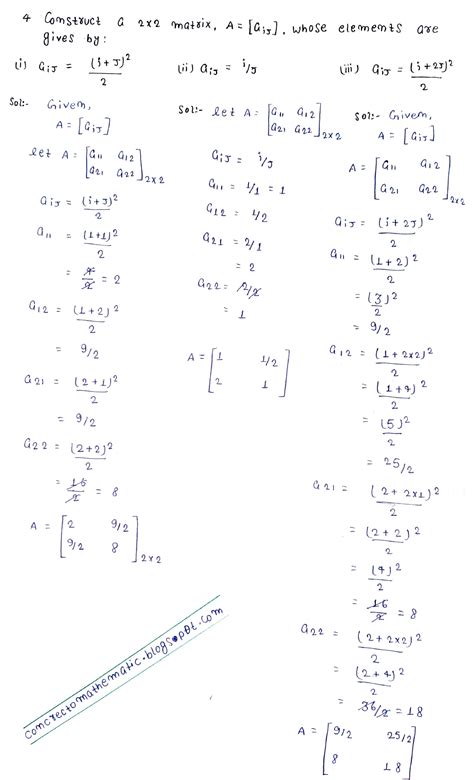 4 Construct a 2x2 matrix, A = [aij], whose elements are
gives by:
(i) aij = (i+j)²/2
(ii) aij = i/j
(iii) aij = (i+2j)²/2
Sol:- Given,
A = [aij]
let A = [a11 a12
a21 a22]2x2
aij = (i+j)²/2
a11 = (1+1)²/2
= 4/2 = 2
a12 = (1+2)²/2
= 9/2
a21 = (2+1)²/2
= 9/2
a22 = (2+2)²/2
= 16/2 = 8
A = [2 9/2
9/2 8]2x2
Sol:- let A = [a11 a12
a21 a22]2x2
aij = i/j
a11 = 1/1 = 1
a12 = 1/2
a21 = 2/1
= 2
a22 = 2/2
= 1
A = [1 1/2
2 1]
Sol:- Given,
A = [aij]
A = [a11 a12
a21 a22]2x2
aij = (i+2j)²/2
a11 = (1+2)²/2
= (3)²/2
= 9/2
a12 = (1+2x2)²/2
= (1+4)²/2
= (5)²/2
= 25/2
a21 = (2+2x1)²/2
= (2+2)²/2
= (4)²/2
= 16/2 = 8
a22 = (2+2x2)²/2
= (2+4)²/2
= 36/2 = 18
A = [9/2 25/2
8 18]
concrectomathematic.blogspot.com